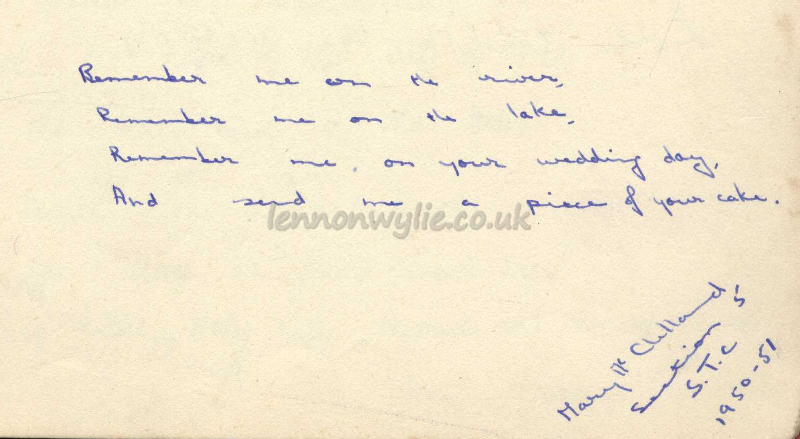 Remember me on the river,
Remember me on the lake,
Remember me, on your wedding day,
And send me a piece of your cake.
lennonwylie.co.uk
Mary Mc Clelland
Section 5
S.T.C
1950-51